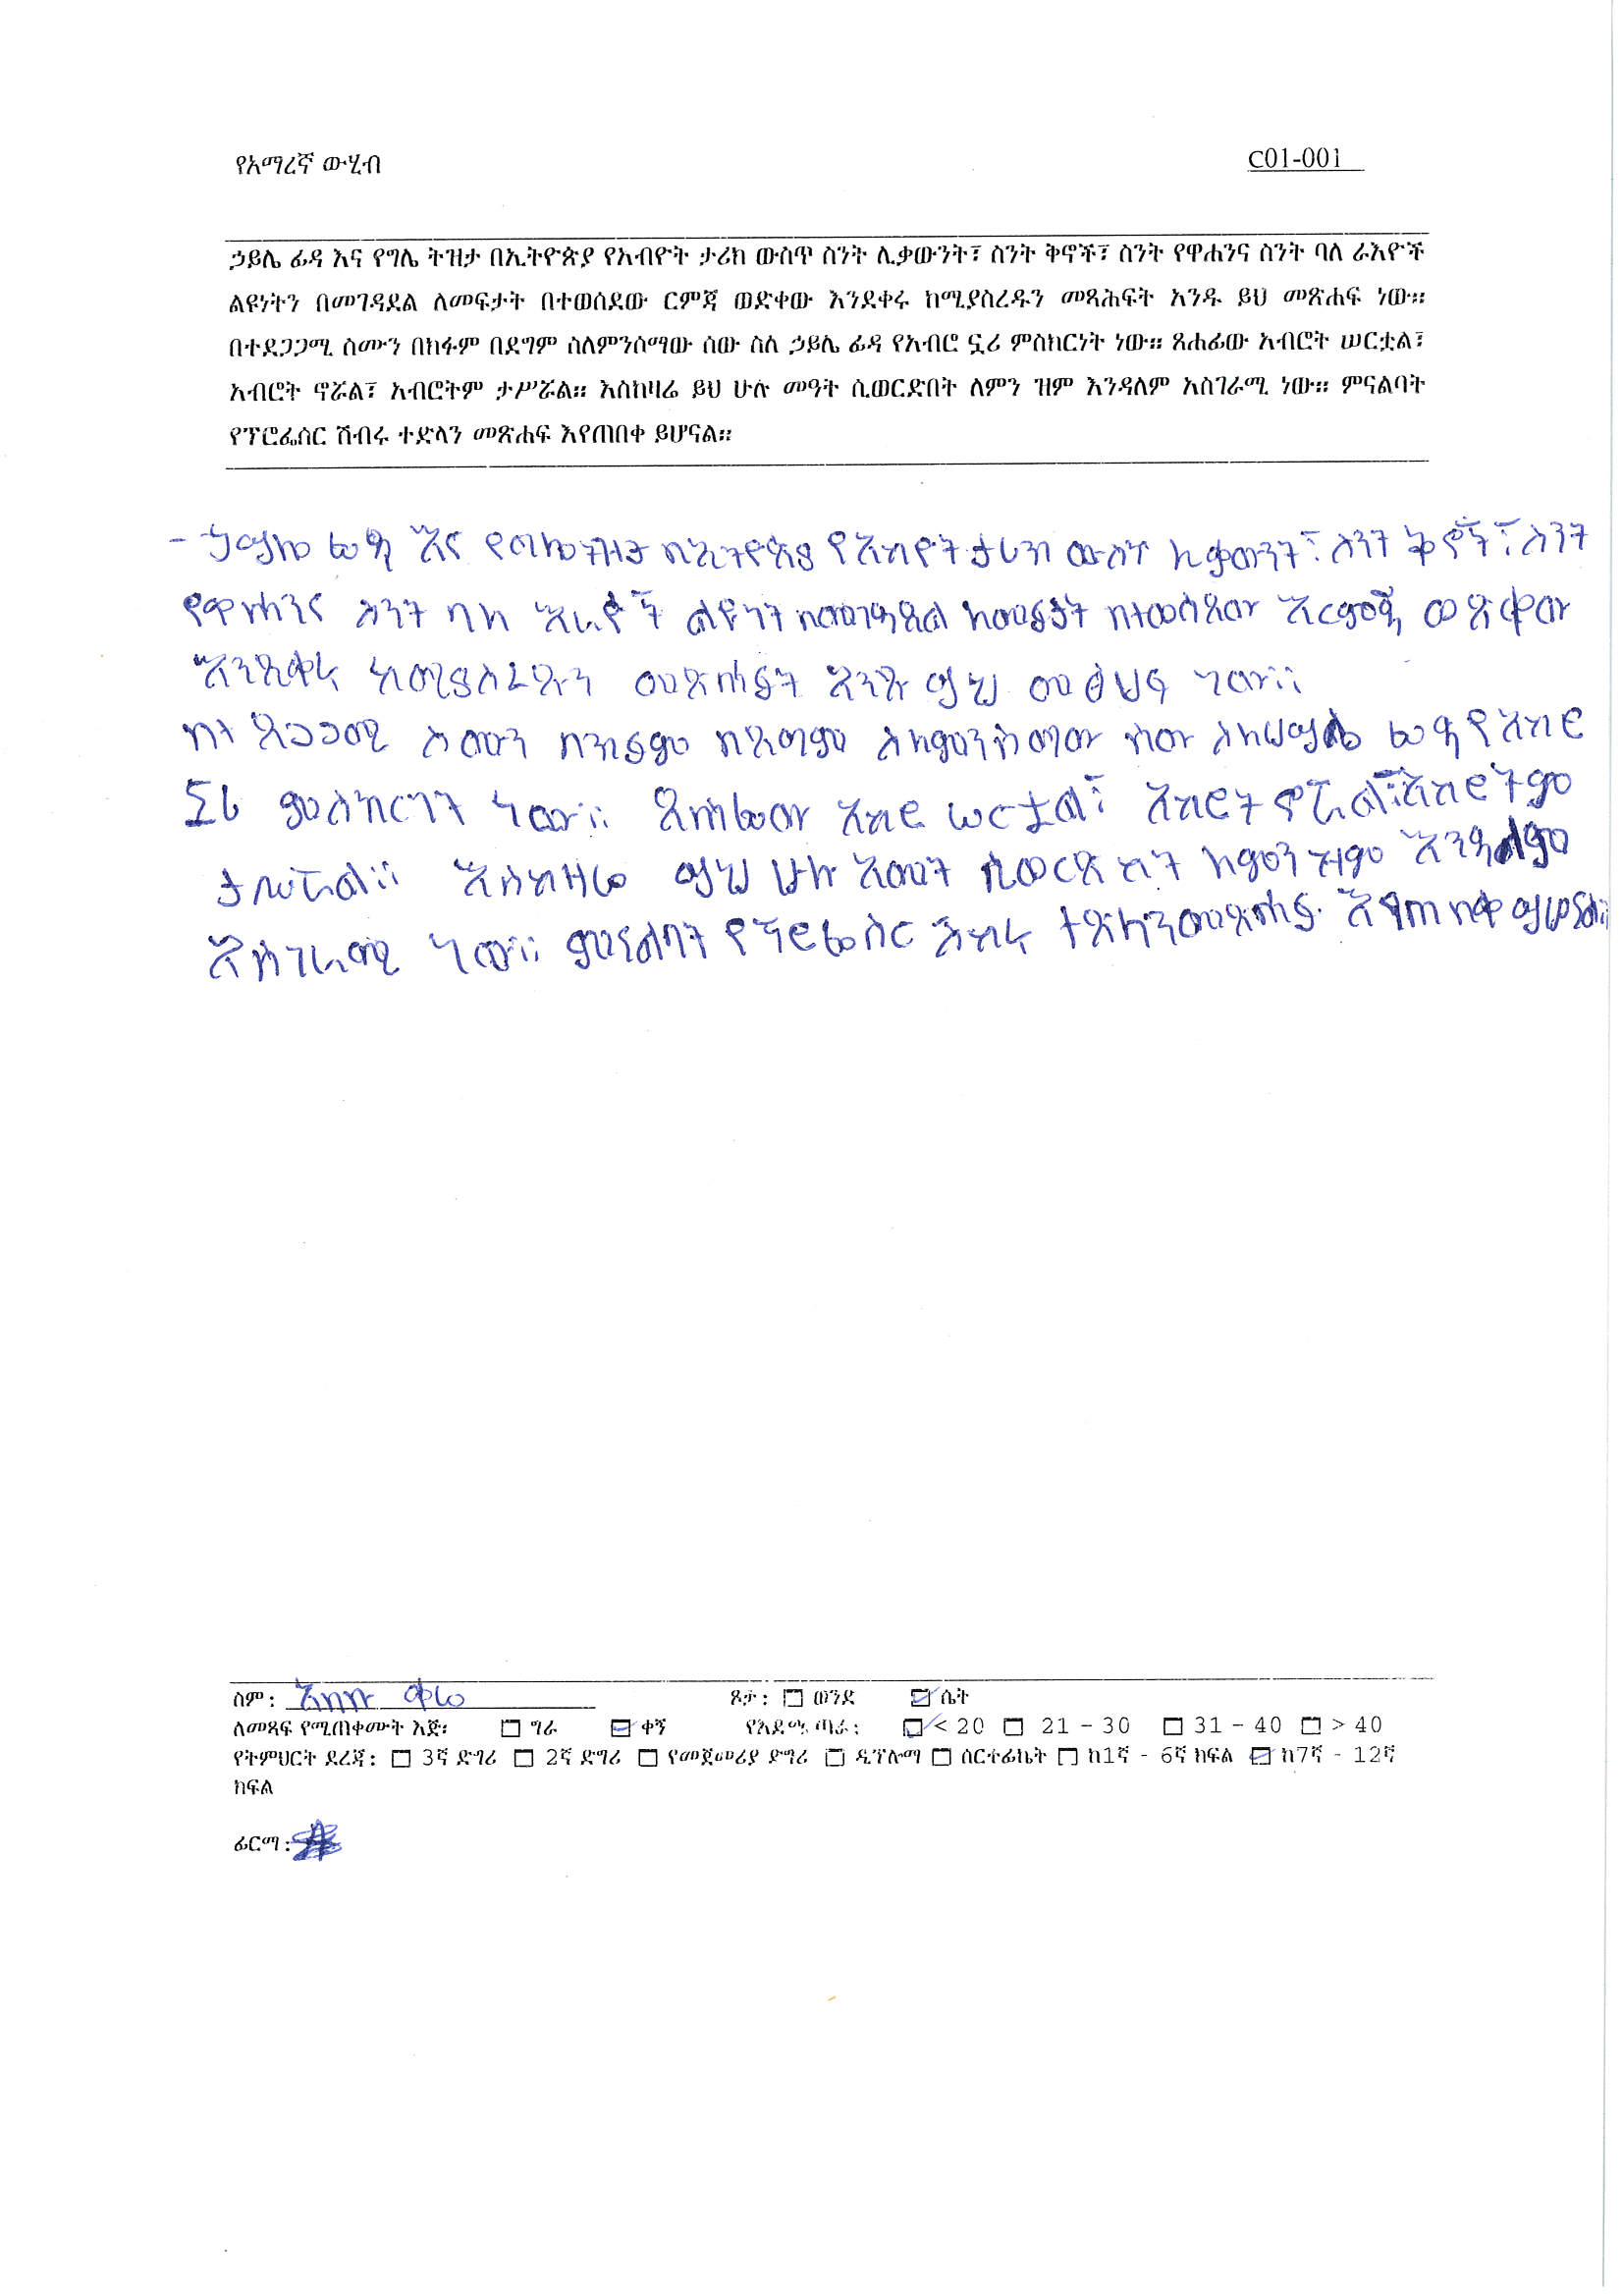 የአማረኛ ውሂብ
C01-001
ኃይሌ ፊዳ እና የግሌ ትዝታ በኢትዮጵያ የአብዮት ታሪክ ውስጥ ስንት ሊቃውንት፣ ስንት ቅኖች፣ ስንት የዋሐንና ስንት ባለ ራእዮች
ልዩነትን በመገዳደል ለመፍታት በተወሰደው ርምጃ ወድቀው እንደቀሩ ከሚያስረዱን መጻሕፍት አንዱ ይህ መጽሐፍ ነው።
በተደጋጋሚ ስሙን በክፉም በደግም ስለምንሰማው ሰው ስለ ኃይሌ ፊዳ የአብሮ ኗሪ ምስክርነት ነው። ጸሐፊው አብሮት ሠርቷል፣
አብሮት ኖሯል፣ አብሮትም ታሥሯል። እስከዛሬ ይህ ሁሉ መዓት ሲወርድበት ለምን ዝም እንዳለም አስገራሚ ነው። ምናልባት
የፕሮፌሰር ሽብሩ ተድላን መጽሐፍ እየጠበቀ ይሆናል።
- ኃይሌ ፊዳ እና የግሌ ትዝታ በኢትዮጵያ የአብዮት ታሪክ ውስጥ ሊቃውንት፣ ስንት ቅኖች፣ ስንት
የዋሐንና ስንት ባለ እራዮች ልዩነት በመገዳደል ለመፍታት በተወሰደው እርምጃ ወድቀው
እንደቀሩ ከሚያስረዱን መጽሐፍት አንዱ ይህ መፅህፍ ነው።
በተደጋጋሚ ስሙን በክፍም በደግም ስለምንሰማው ሰው ስለሀይሌ ፊዳ የአብሮ
ኗሪ ምስክርነት ነው። ጸሐፊው አብሮ ሠርቷል፣ አብሮት ኖሯል፣ አብሮትም
ታሥሯል። እስከዛሬ ይህ ሁሉ አመት ሲወርድበት ለምን ዝም እንዳልም
አስገራሚ ነው። ምናልባት የፕሮፌሰር ሽብሩ ተድላን መጽሐፍ እየጠበቀ ይሆናል።
ስም: አበባ ቀሬ ጾታ: ወንድ ሴት
ለመጻፍ የሚጠቀሙት እጅ: ግራ ቀኝ የእድሜ ጣራ: < 20 21 - 30 31 - 40 > 40
የትምህርት ደረጃ: 3ኛ ድግሪ 2ኛ ድግሪ የመጀመሪያ ድግሪ ዲፕሎማ ሰርተፊኬት ከ1ኛ - 6ኛ ክፍል ከ7ኛ - 12ኛ
ክፍል
ፊርማ: